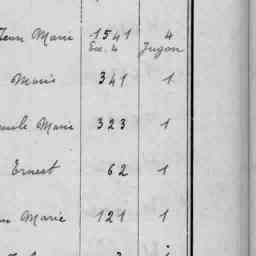 Jean Marie 1541 4
Sec. 4 Jugon
Marie 341 1
Marie 323 1
Ernest 62 1
Marie 121 1